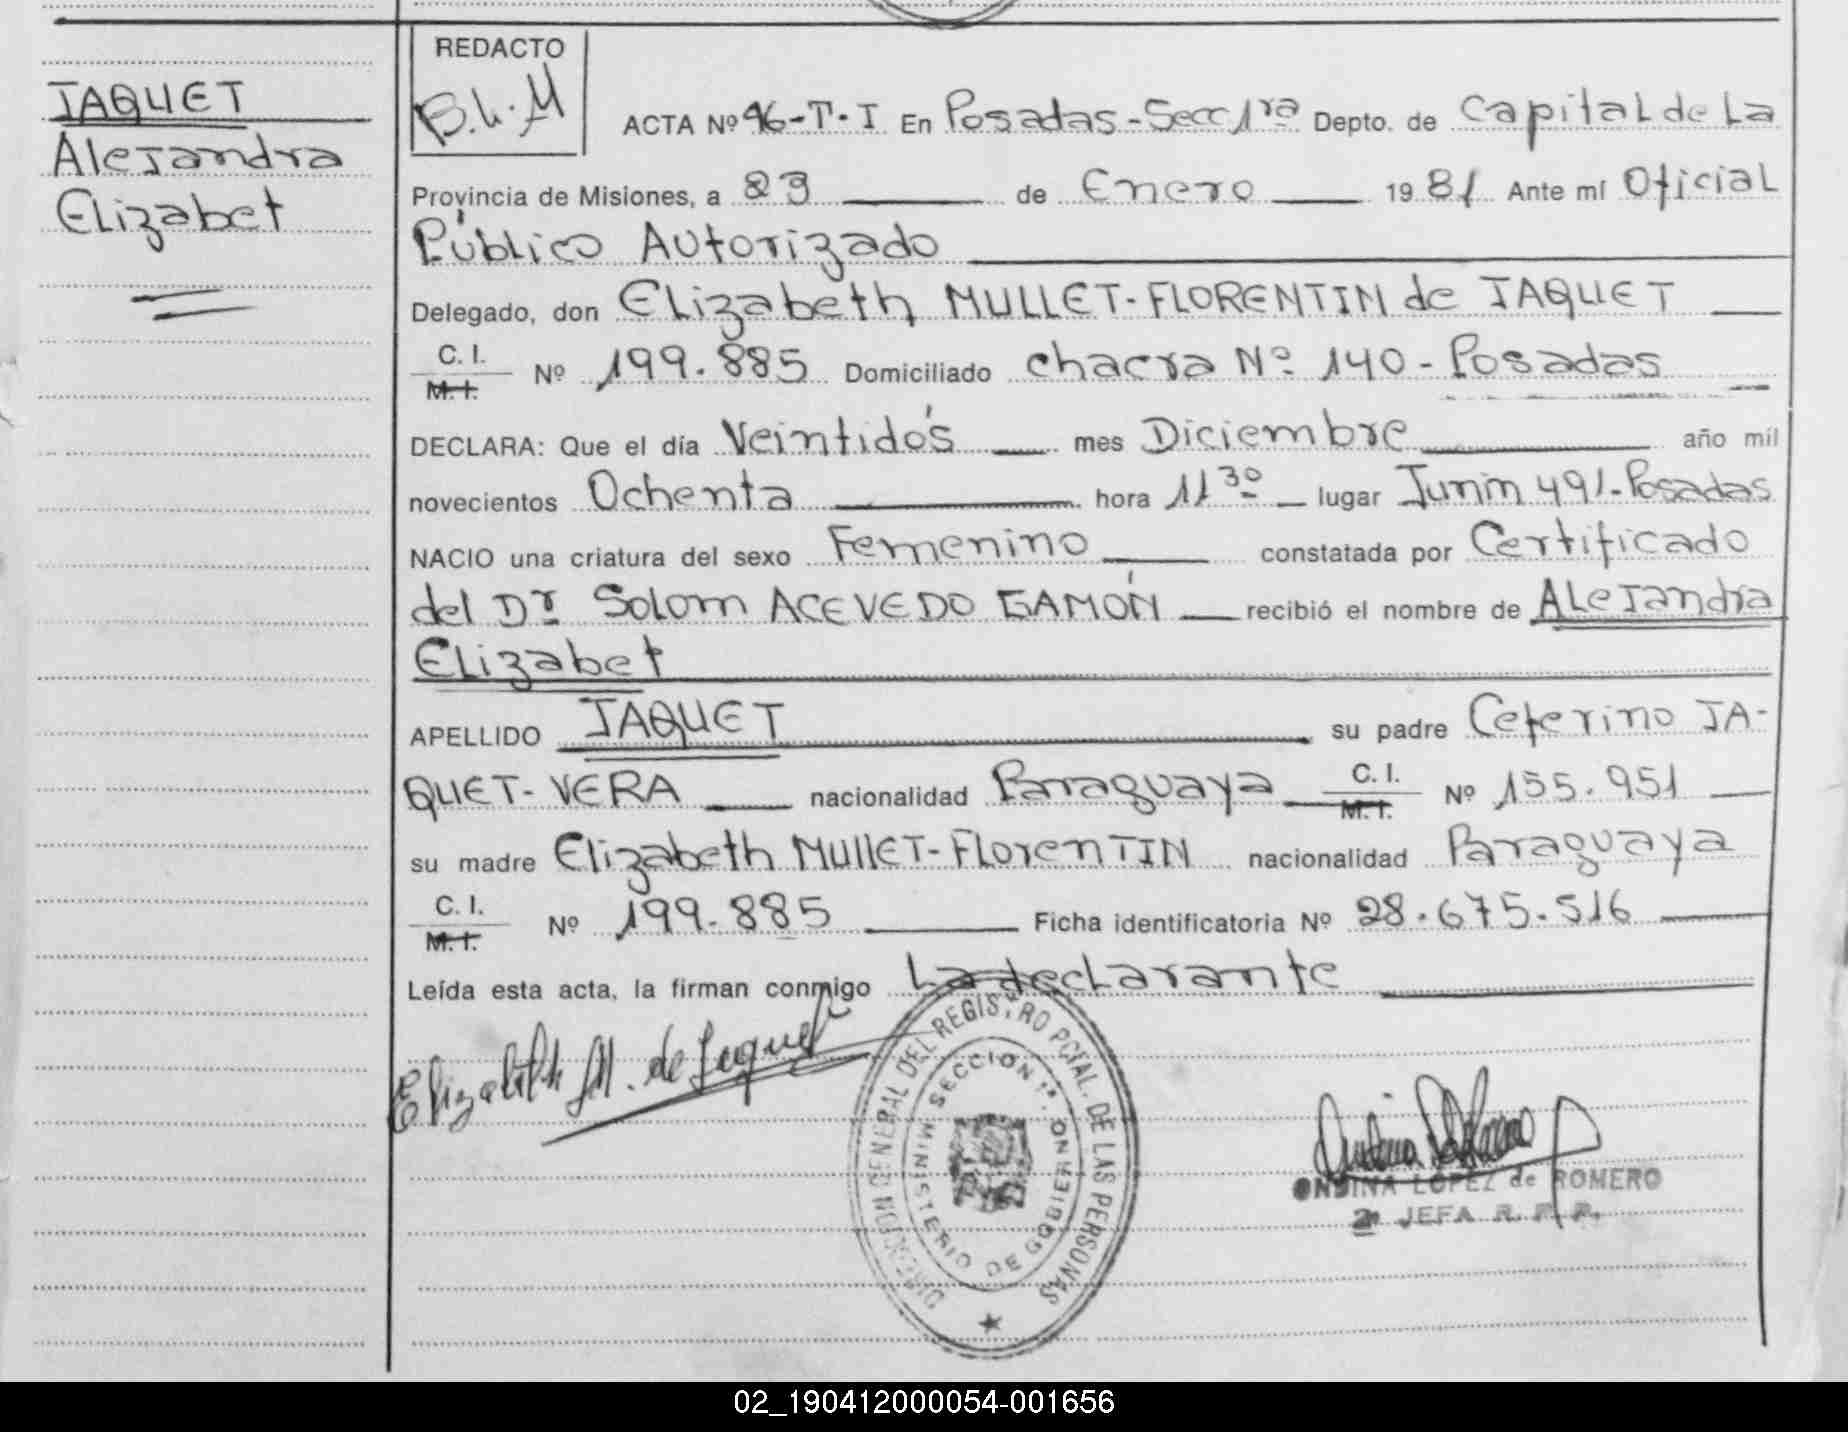 JAQUET
Alejandra
Elizabet
REDACTO
B.L.M
ACTA Nº 96-T-I En Posadas-Secc 1ra Depto. de Capital de La
Provincia de Misiones, a 23 de Enero 1981 Ante mí Oficial
Público Autorizado
Delegado, don Elizabeth MULLET-FLORENTIN de JAQUET
C. I.
M. I. Nº 199.885 Domiciliado chacra Nº 140-Posadas
DECLARA: Que el día Veintidós mes Diciembre año mil
novecientos Ochenta hora 11 30 lugar Junin 491-Posadas
NACIO una criatura del sexo Femenino constatada por Certificado
del Dr Solom ACEVEDO GAMÓN recibió el nombre de Alejandra
Elizabet
APELLIDO JAQUET su padre Ceferino JA-
QUET-VERA nacionalidad Paraguaya C. I. M. I. Nº 155.951
su madre Elizabeth Mullet-Florentin nacionalidad Paraguaya
C. I.
M. I. Nº 199.885 Ficha identificatoria Nº 28.675.516
Leída esta acta, la firman conmigo La declarante
Elizabeth M. de Jaquet
DIRECCION GENERAL DEL REGISTRO PCIAL. DE LAS PERSONAS
SECCION 1ª.
MINISTERIO DE GOBIERNO
ONDINA LOPEZ de ROMERO
2ª JEFA R. P. P.
02_190412000054-001656